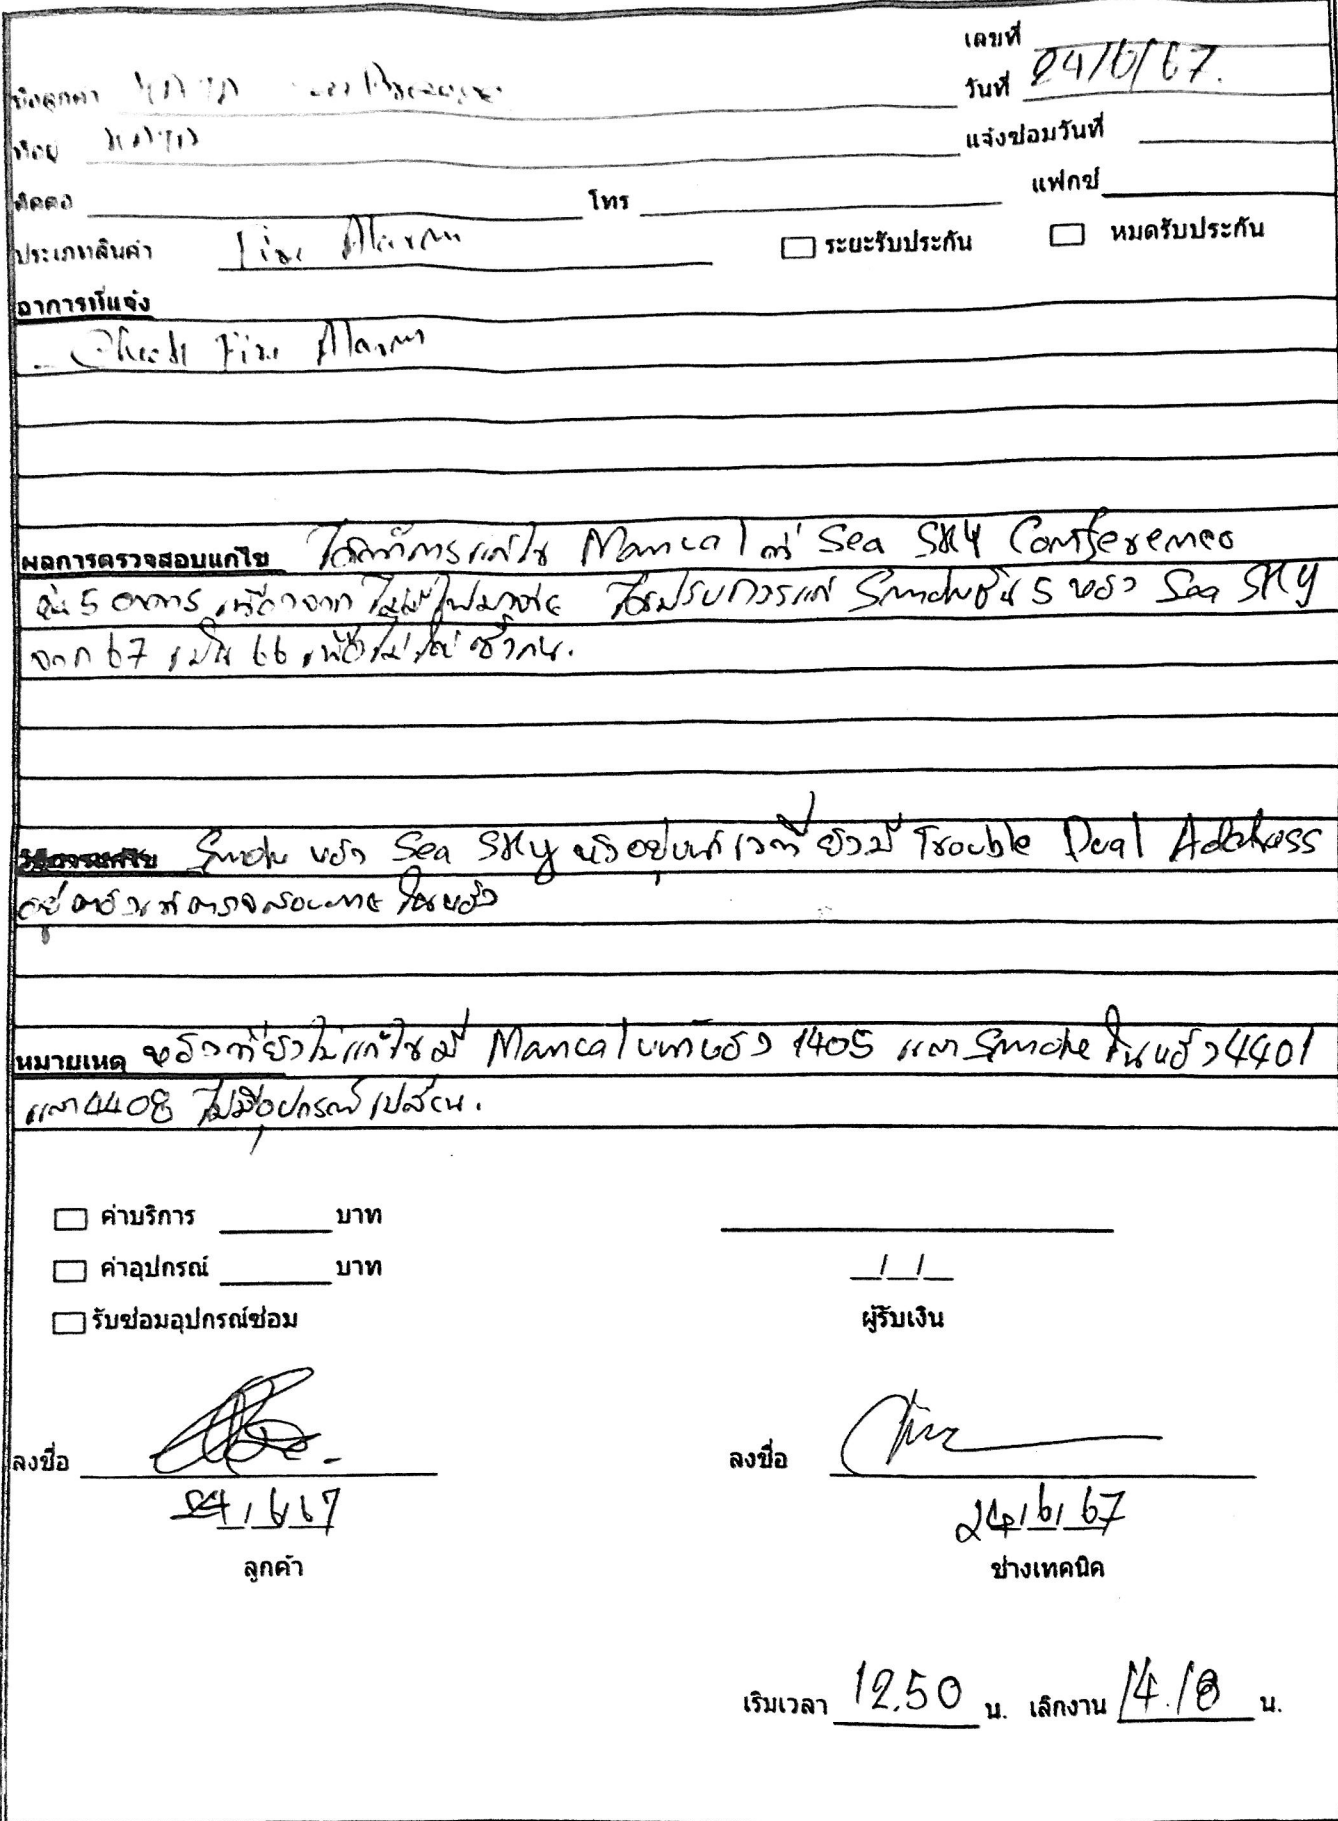 เลขที่
วันที่ 24/6/67.
ชื่อลูกค้า
ที่อยู่
แจ้งซ่อมวันที่
ติดต่อ โทร แฟกซ์
ประเภทสินค้า Fire Alarm ระยะรับประกัน หมดรับประกัน
อาการที่แจ้ง
- Check Fire Alarm
ผลการตรวจสอบแก้ไข ได้ทำการแก้ไข Manual ที่ Sea Sky Conference
ชั้น 5 อาคาร เนื่องจาก ไม่มีไฟมา Smoke ชั้น 5 ห้อง Sea Sky
จาก 67 เป็น 66 เพื่อไม่ให้ ซ้ำกัน.
วิธีการแก้ไข Smoke ห้อง Sea Sky ยังมี Trouble Dual Address
อยู่ ตรวจสอบ ในห้อง
หมายเหตุ ที่ยังไม่แก้ไขมี Manual หน้าห้อง 1405 และ Smoke ในห้อง 4401
และ 4408 ไม่มีอุปกรณ์เปลี่ยน.
ค่าบริการ บาท
ค่าอุปกรณ์ บาท
/ /
รับซ่อมอุปกรณ์ซ่อม
ผู้รับเงิน
ลงชื่อ ลงชื่อ
24/6/67 24/6/67
ลูกค้า ช่างเทคนิค
เริ่มเวลา 12.50 น. เลิกงาน 14.18 น.